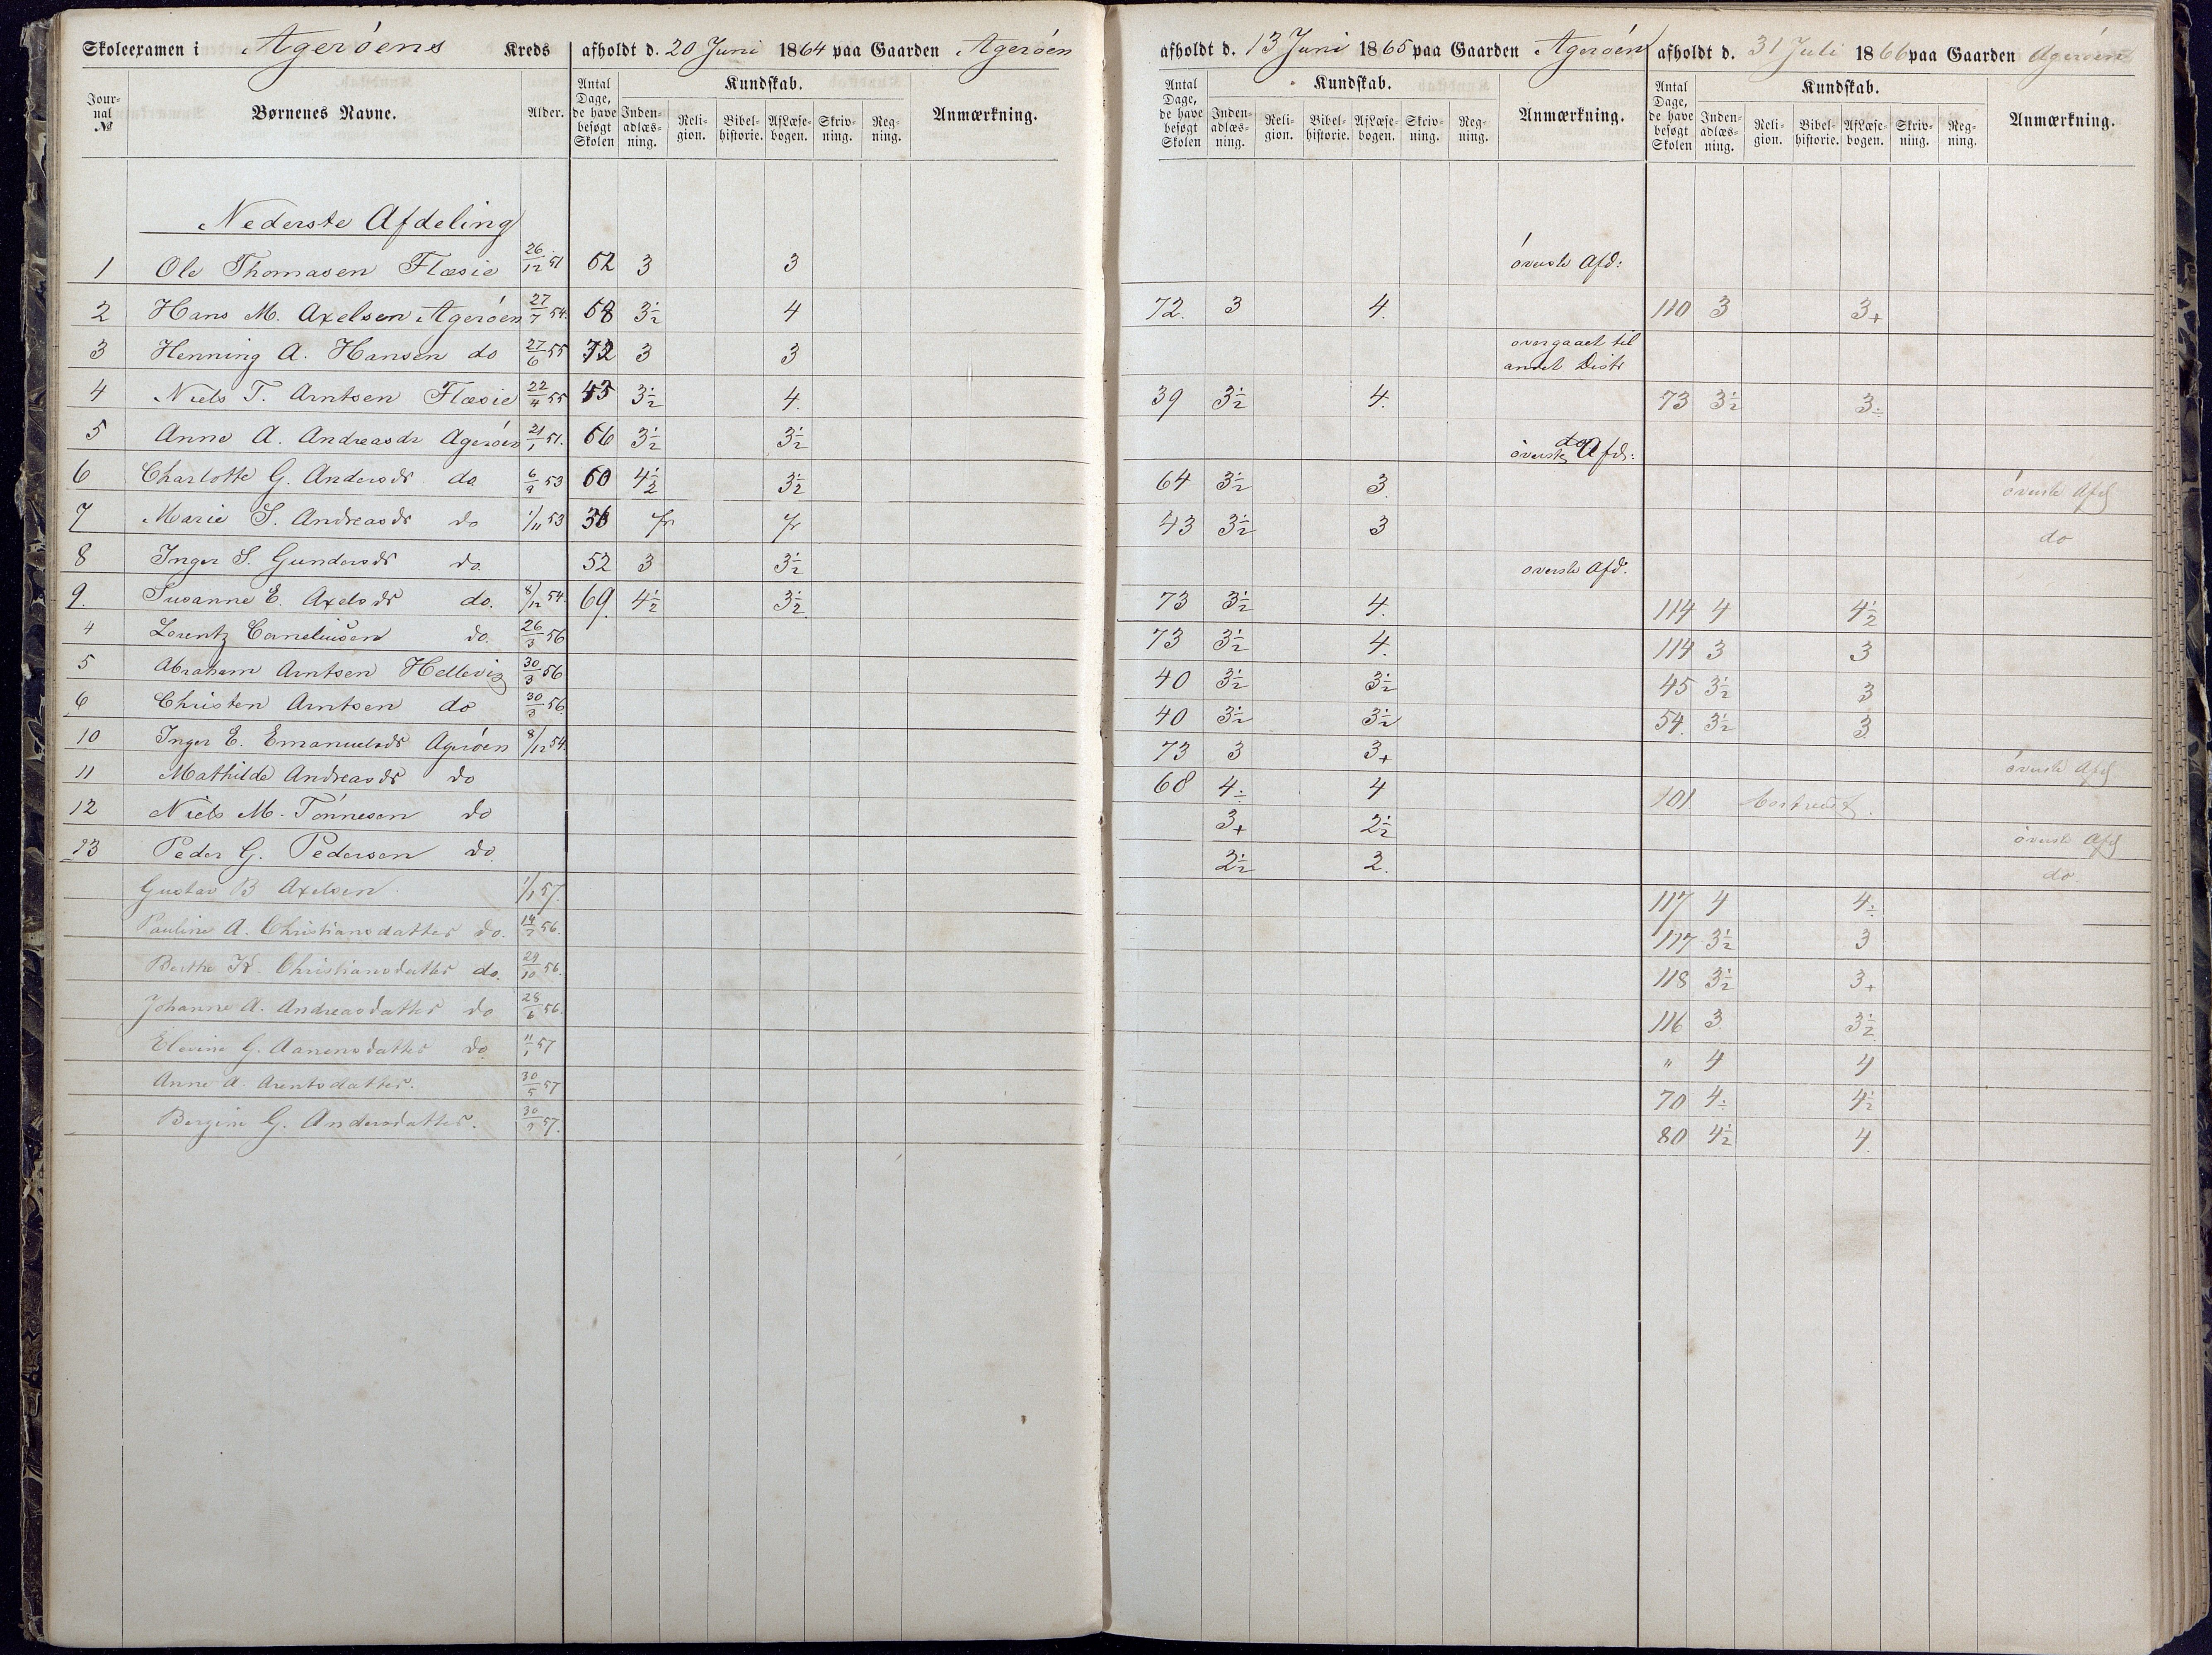 Skoleexamen i Agerøens Kreds afholdt d. 20 Juni 1864 paa Gaarden Agerøen afholdt d. 13 Juni 1865 paa Gaarden Agerøen afholdt d. 31 Juli 1866 paa Gaarden Agerøen
Jour-nal № Børnenes Navne. Alder. Antal Dage, de have besøgt Skolen Kundskab. Inden-adlæs-ning. Reli-gion. Bibel-historie. Af Læse-bogen. Skriv-ning. Reg-ning. Anmærkning. Antal Dage, de have besøgt Skolen Kundskab. Inden-adlæs-ning. Reli-gion. Bibel-historie. Af Læse-bogen. Skriv-ning. Reg-ning. Anmærkning. Antal Dage, de have besøgt Skolen Kundskab. Inden-adlæs-ning. Reli-gion. Bibel-historie. Af Læse-bogen. Skriv-ning. Reg-ning. Anmærkning.
Nederste Afdeling
1 Ole Thomasen Flæsie 26/12 51 62 3 3 øverste Afd:
2 Hans M. Axelsen Agerøen 27/7 54. 68 3½ 4 72. 3 4. 110 3 3+
3 Henning A. Hansen do 27/6 55 72 3 3 overgaaet til andet Distr
4 Niels T. Arntsen Flæsie 22/4 55 45 3½ 4. 39 3½ 4. 73 3½ 3÷
5 Anne A. Andreasdr Agerøen 21/1 51. 66 3½ 3½ øverste Afd:
6 Charlotte G. Andersdr do 6/9 53 60 4½ 3½ 64 3½ 3. øverste Afd
7 Marie S. Andreasdr do 1/11 53 36 43 3½ 3 do
8 Inger S. Gundersdr do. 52 3 3½ øverste Afd.
9. Susanne E. Axelsdr do. 8/12 54. 69. 4½ 3½ 73 3½ 4. 114 4 4½
4 Lorentz Corneliusen do. 26/3 56 73 3½ 4. 114 3 3
5 Abraham Arntsen Hellevig 30/3 56 40 3½ 3½ 45 3½ 3
6 Christen Arntsen do 30/3 56. 40 3½ 3½ 54. 3½ 3.
10 Inger E. Emanuelsdr Agerøen 8/12 54. 73 3 3+ øverste Afd
11 Mathilde Andreasdr do 68 4÷ 4 101 bortreist.
12 Niels M. Tønnesen do 3+ 2½ øverste Afd
13 Peder G. Pedersen do. 2½ 2. do.
Gustav B Axelsen. 1/1 57. 117 4 4÷
Pauline A. Christiansdatter do. 14/7 56. 117 3½ 3
Berthe K. Christiansdatter do. 29/10 56. 118 3½ 3+
Johanne A. Andreasdatter do 28/6 56. 116 3. 3½
Elevine G. Aanensdatter do. 11/1 57 " 4 4
Anne A. Arentsdatter. 30/5 57 70 4÷ 4½
Bergine G. Andersdatter. 57. 80 4½ 4.